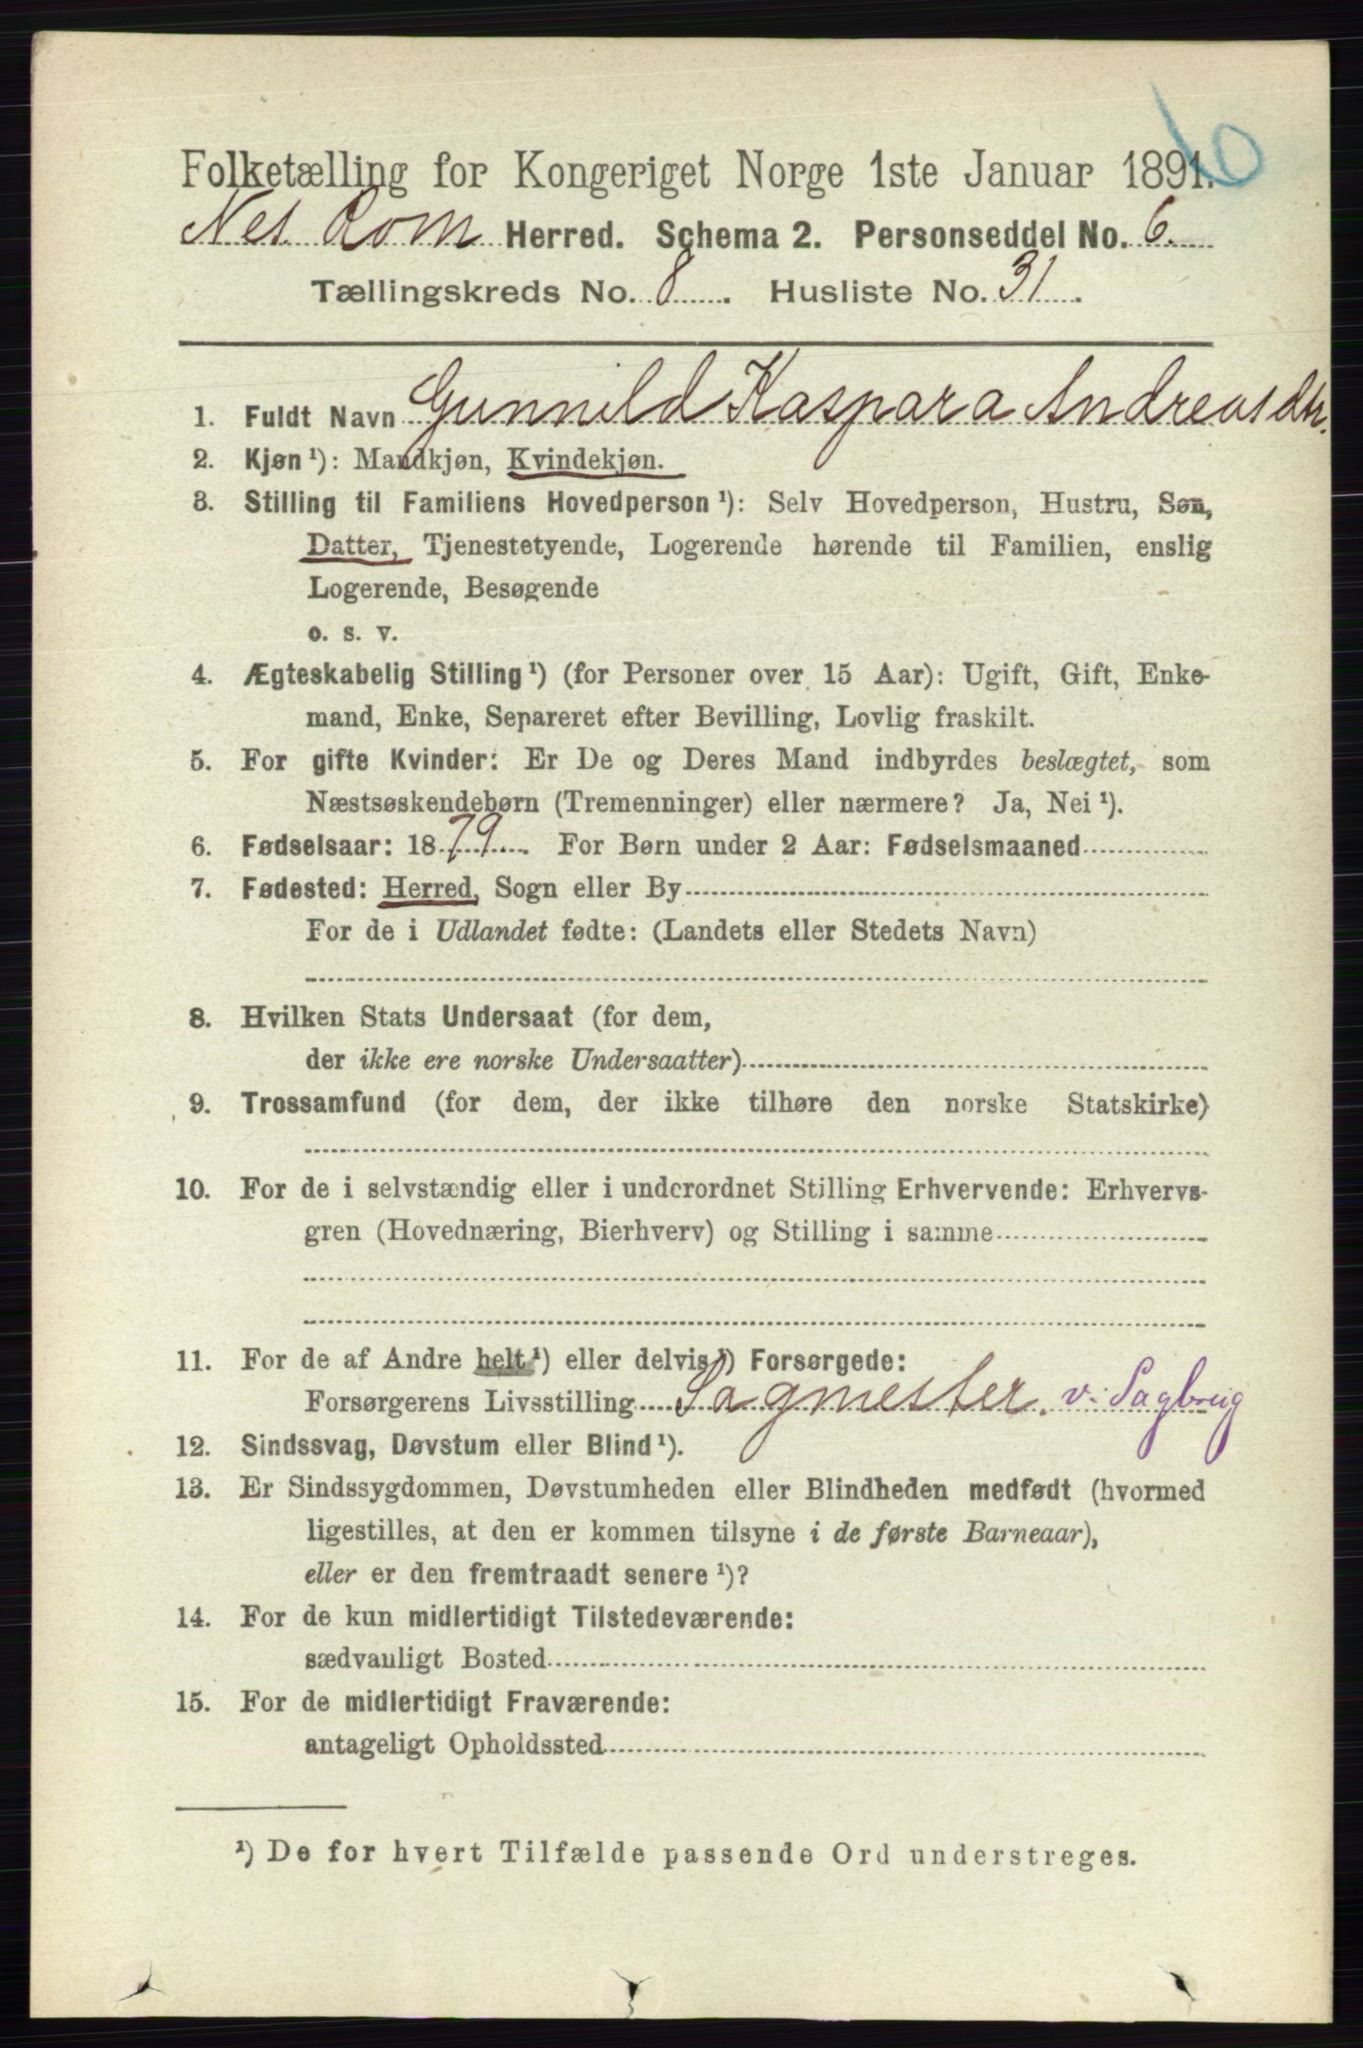 6
Folketælling for Kongeriget Norge 1ste Januar 1891.
Nes Rom Herred. Schema 2. Personseddel No. 6.
Tællingskreds No. 8 . Husliste No. 31 .
1. Fuldt Navn Gunnild Kaspara Andreasdtr.
2. Kjøn ¹): Mandkjøn, Kvindekjøn.
3. Stilling til Familiens Hovedperson ¹): Selv Hovedperson, Hustru, Søn,
Datter, Tjenestetyende, Logerende hørende til Familien, enslig
Logerende, Besøgende
o. s. v.
4. Ægteskabelig Stilling ¹) (for Personer over 15 Aar): Ugift, Gift, Enke-
mand, Enke, Separeret efter Bevilling, Lovlig fraskilt.
5. For gifte Kvinder: Er De og Deres Mand indbyrdes beslægtet, som
Næstsøskendebørn (Tremenninger) eller nærmere? Ja, Nei ¹).
6. Fødselsaar: 1879 . For Børn under 2 Aar: Fødselsmaaned
7. Fødested: Herred, Sogn eller By
For de i Udlandet fødte: (Landets eller Stedets Navn)
8. Hvilken Stats Undersaat (for dem,
der ikke ere norske Undersaatter)
9. Trossamfund (for dem, der ikke tilhøre den norske Statskirke)
10. For de i selvstændig eller i underordnet Stilling Erhvervende: Erhvervs-
gren (Hovednæring, Bierhverv) og Stilling i samme
11. For de af Andre helt ¹) eller delvis ¹) Forsørgede:
Forsørgerens Livsstilling Sagmester. v. Sagbrug
12. Sindssvag, Døvstum eller Blind ¹).
13. Er Sindssygdommen, Døvstumheden eller Blindheden medfødt (hvormed
ligestilles, at den er kommen tilsyne i de første Barneaar),
eller er den fremtraadt senere ¹)?
14. For de kun midlertidigt Tilstedeværende:
sædvanligt Bosted
15. For de midlertidigt Fraværende:
antageligt Opholdssted
¹) De for hvert Tilfælde passende Ord understreges.